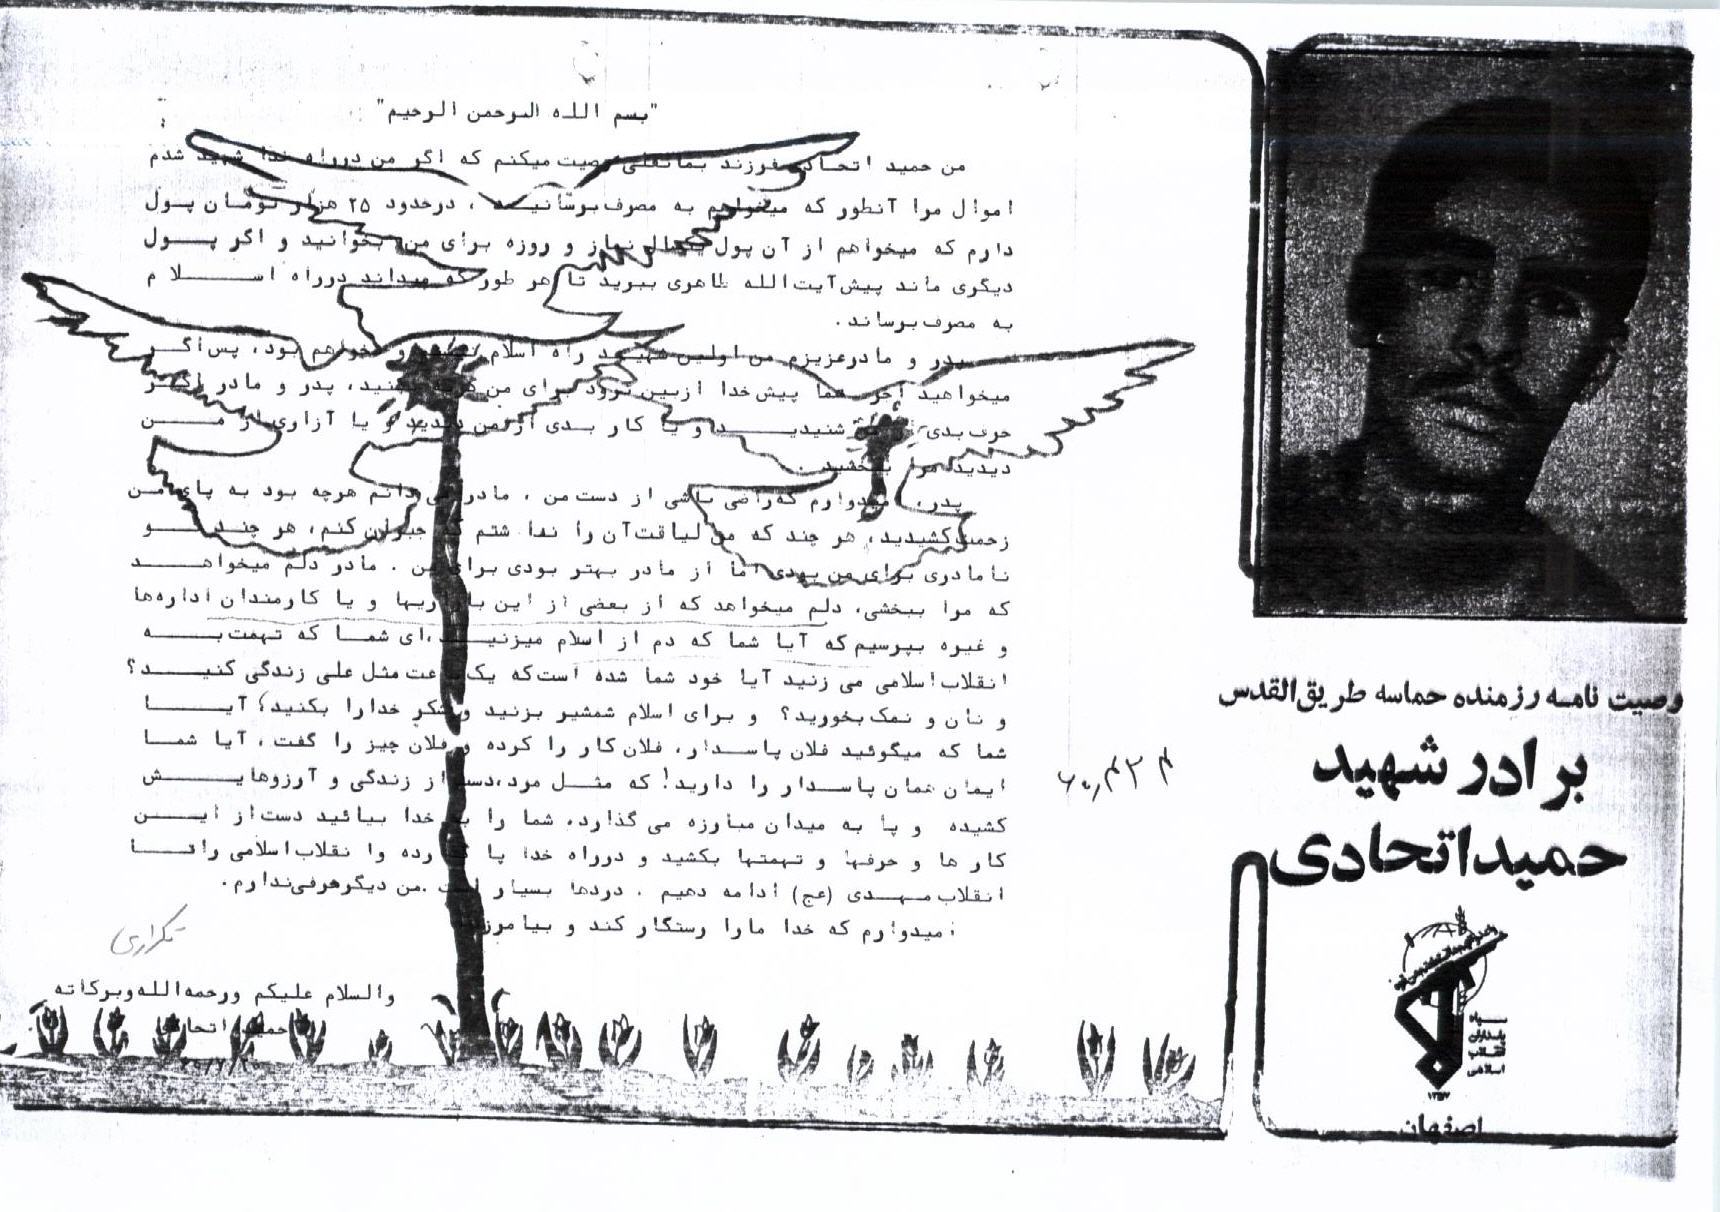 "بسم الله الرحمن الرحیم"
من حمید اتحادی فرزند یمانعلی وصیت میکنم که اگر من درراه خدا شهید شدم
اموال مرا آنطور که میخواهم به مصرف برسانید ، درحدود ۲۵ هزار تومان پول
دارم که میخواهم از آن پول یکسال نماز و روزه برای من بخوانید و اگر پول
دیگری ماند پیش آیت‌الله طاهری ببرید تا هر طور که میداند درراه اسلام
به مصرف برساند .
پدر و مادر عزیزم من اولین شهید راه اسلام نیستم و نخواهم بود، پس اگر
میخواهید اجر شما پیش خدا ازبین نرود برای من گریه نکنید، پدر و مادر اگر
حرف بدی از من شنیدید و یا کار بدی از من دیدید و یا آزاری از من
دیدید مرا ببخشید .
پدر، امیدوارم که راضی باشی از دست من ، مادر می دانم هرچه بود به پای من
زحمت کشیدید، هر چند که من لیاقت آن را نداشتم که جبران کنم، هر چند تو
نامادری برای من بودی اما از مادر بهتر بودی برای من . مادر دلم میخواهد
که مرا ببخشی، دلم میخواهد که از بعضی از این بازاریها و یا کارمندان اداره‌ها
و غیره بپرسیم که آیا شما که دم از اسلام میزنید ،ای شما که تهمت به
انقلاب اسلامی می زنید آیا خود شما شده است که یک ساعت مثل علی زندگی کنید؟
و نان و نمک بخورید؟ و برای اسلام شمشیر بزنید و شکر خدارا بکنید؟ آیا
شما که میگوئید فلان پاسدار، فلان کار را کرده و فلان چیز را گفت ، آیا شما
ایمان همان پاسدار را دارید! که مثل مرد،دست از زندگی و آرزوهایش
کشیده و پا به میدان مبارزه می گذارد، شما را به خدا بیائید دست از این
کار ها و حرفها و تهمتها بکشید و درراه خدا پا گذارده وا نقلاب اسلامی راتا
انقلاب مهدی (عج) ادامه دهیم . دردها بسیار است .من دیگر حرفی ندارم .
امیدوارم که خدا مارا رستگار کند و بیامرزد
تکراری
والسلام علیکم ورحمه الله وبرکاته
حمید اتحادی
وصیت نامه رزمنده حماسه طریق القدس
برادر شهید
حمید اتحادی
سپاه
پاسداران
انقلاب
اسلامی
۱۳۵۷
اصفهان